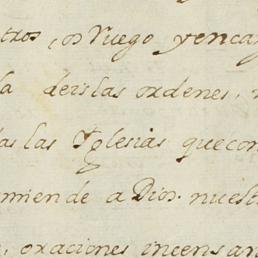 tros, os Ruego yencar
la deis las ordenes,
las las Yglesias quecon
miende a Dios nuest
, oraciones incensan